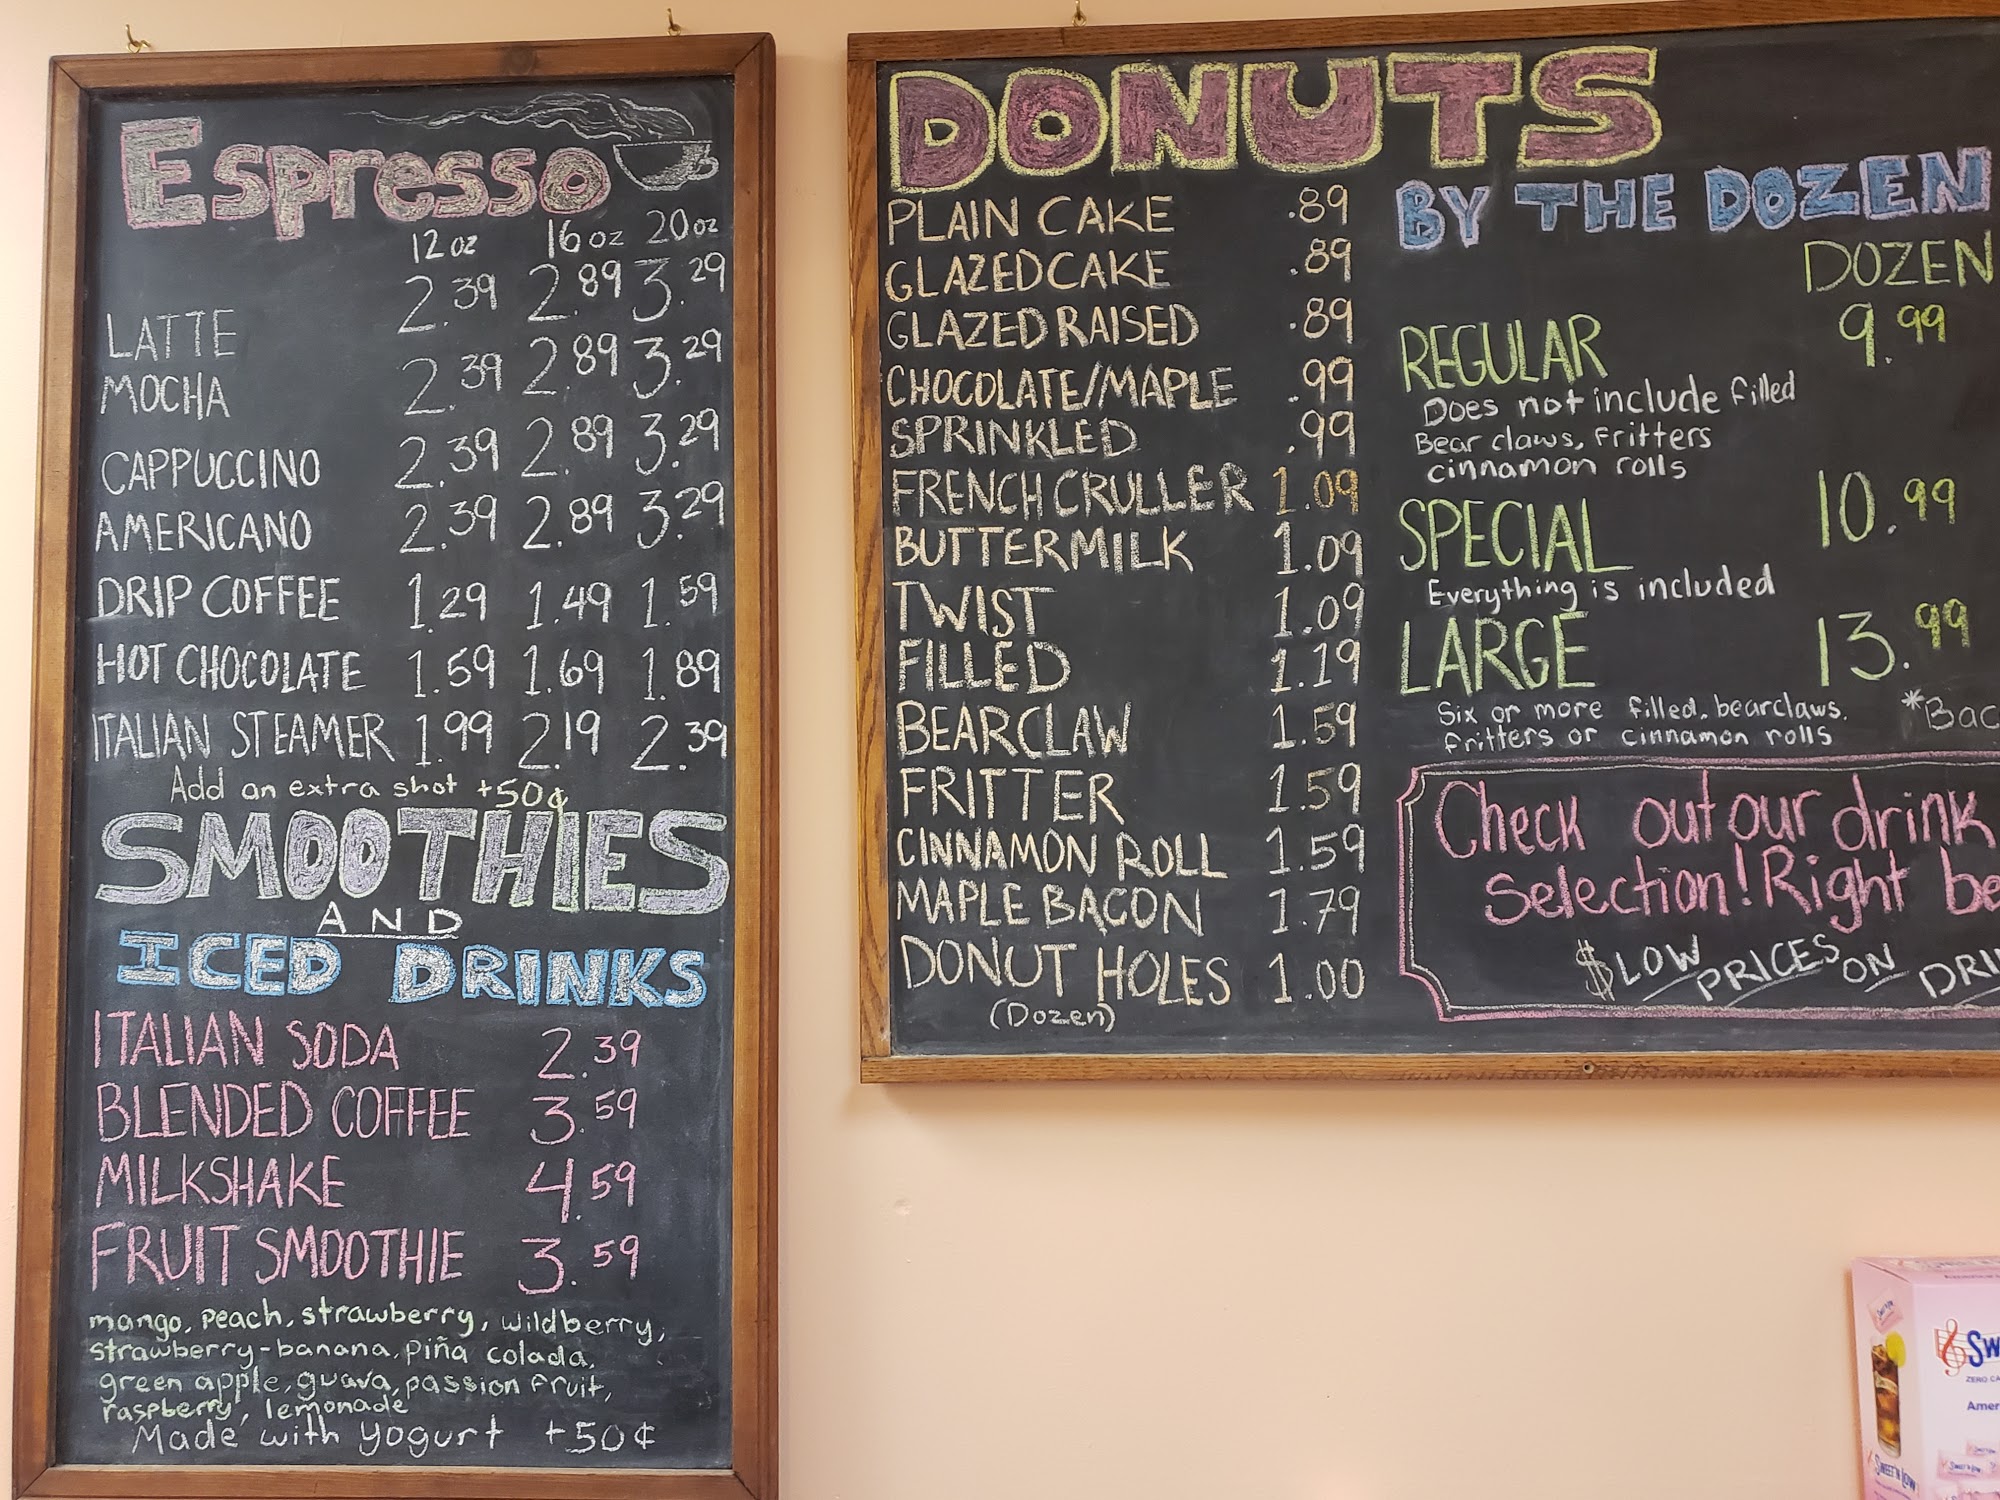 Espresso
12oz 16oz 20oz
LATTE 2.39 2.89 3.29
MOCHA 2.39 2.89 3.29
CAPPUCCINO 2.39 2.89 3.29
AMERICANO 2.39 2.89 3.29
DRIP COFFEE 1.29 1.49 1.59
HOT CHOCOLATE 1.59 1.69 1.89
ITALIAN STEAMER 1.99 2.19 2.39
Add an extra shot +50¢
SMOOTHIES
AND
ICED DRINKS
ITALIAN SODA 2.39
BLENDED COFFEE 3.59
MILKSHAKE 4.59
FRUIT SMOOTHIE 3.59
mango, peach, strawberry, wildberry,
strawberry-banana, piña colada,
green apple, guava, passion fruit,
raspberry, lemonade
Made with yogurt +50¢
DONUTS
PLAIN CAKE .89
GLAZED CAKE .89
GLAZED RAISED .89
CHOCOLATE/MAPLE .99
SPRINKLED .99
FRENCH CRULLER 1.09
BUTTERMILK 1.09
TWIST 1.09
FILLED 1.19
BEARCLAW 1.59
FRITTER 1.59
CINNAMON ROLL 1.59
MAPLE BACON 1.79
DONUT HOLES 1.00
(Dozen)
BY THE DOZEN
DOZEN
REGULAR 9.99
Does not include filled
Bear claws, Fritters
cinnamon rolls
SPECIAL 10.99
Everything is included
LARGE 13.99
Six or more filled, bearclaws,
fritters or cinnamon rolls
*Bac
Check out our drink
selection! Right be
$LOW PRICES ON DRI
Sw
ZERO CA
Amer
SWEET'N LOW